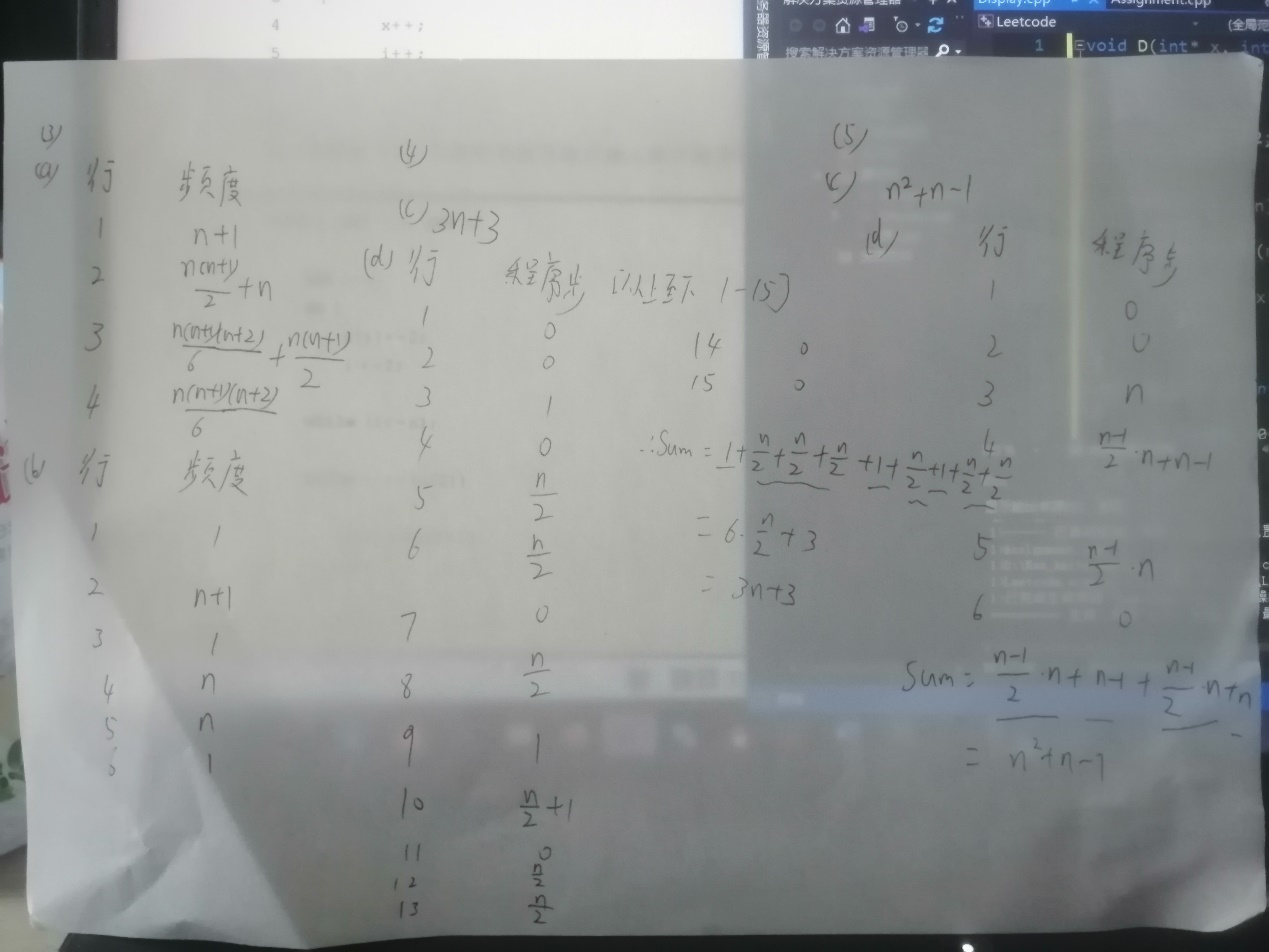 4 x++;
5 i++;
Display.cpp
Assignment.cpp
Leetcode
搜索解决方案资源管理器
1 void D(int* x, int
(3)
(a) 行 频度
1 n+1
2 n(n+1)/2 + n
3 n(n+1)(n+2)/6 + n(n+1)/2
4 n(n+1)(n+2)/6
(b) 行 频度
1 1
2 n+1
3 1
4 n
5 n
6 1
(4)
(c) 3n+3
(d) 行 程序步
1 0
2 0
3 1
4 0
5 n/2
6 n/2
7 0
8 n/2
9 1
10 n/2 + 1
11 0
12 n/2
13 n/2
14 0
15 0
∴Sum = 1+n/2+n/2+n/2+1+n/2+1+n/2+n/2
= 6·n/2+3
= 3n+3
(5)
(c) n²+n-1
(d) 行 程序步
1 0
2 0
3 n
4 n-1/2·n+n-1
5 n-1/2·n
6 0
Sum = n-1/2·n+n-1+n-1/2·n+n
= n²+n-1